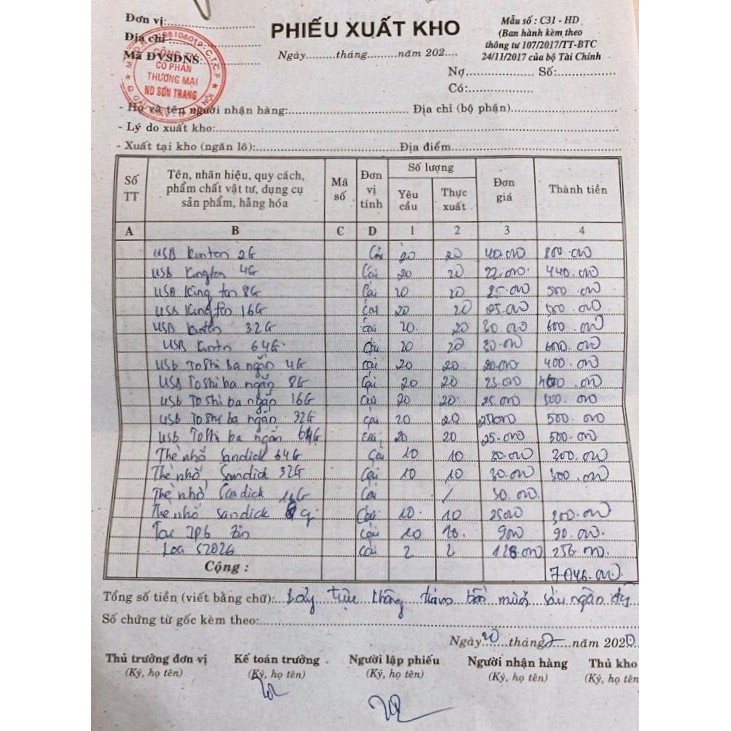 Đơn vị:
Địa chỉ:
Mã ĐVSDNS:
CÔNG TY
CỔ PHẦN
THƯƠNG MẠI
ND SƠN TRANG
PHIẾU XUẤT KHO
Ngày..........tháng..........năm 202....
Mẫu số : C31 - HD
(Ban hành kèm theo
thông tư 107/2017/TT-BTC
24/11/2017 của bộ Tài Chính
Nợ.............. Số:..............
Có:..............
- Họ và tên người nhận hàng:.............. Địa chỉ (bộ phận)..............
- Lý do xuất kho:..............
- Xuất tại kho (ngăn lô):.............. Địa điểm..............
Số TT Tên, nhãn hiệu, quy cách, phẩm chất vật tư, dụng cụ sản phẩm, hàng hóa Mã số Đơn vị tính Số lượng Yêu cầu Thực xuất Đơn giá Thành tiền
A B C D 1 2 3 4
USB Kinton 2G Cái 20 20 40.000 800.000
USB Kington 4G Cái 20 20 22.000 440.000
USB King ton 8G Cái 20 20 25.000 500.000
USB Kington 16G Cái 20 20 25.000 500.000
USB Kinton 32G Cái 20 20 30.000 600.000
USB Kinton 64G Cái 20 20 30.000 600.000
USB Toshi ba ngắn 4G Cái 20 20 20.000 400.000
USB Toshi ba ngắn 8G Cái 20 20 25.000
USB Toshi ba ngắn 16G Cái 20 20 25.000 500.000
USB Toshi ba ngắn 32G Cái 20 20 25000 500.000
USB Toshi ba ngắn 64G Cái 20 20 25.000 500.000
Thẻ nhớ Sandick 64G Cái 10 10 300.000
Thẻ nhớ Sandick 32G Cái 10 10 30.000 300.000
Thẻ nhớ Sandick 16G Cái / 30.000
Thẻ nhớ Sandick 8G Cái 10 10
Cái 10 10 9000 90.000
Loa S202G Cái 2 2 128.000 256.000
Cộng : 7.046.000
Tổng số tiền (viết bằng chữ): bảy triệu không trăm bốn mươi sáu ngàn
Số chứng từ gốc kèm theo:
Ngày 20 tháng 2 năm 2020
Thủ trưởng đơn vị Kế toán trưởng Người lập phiếu Người nhận hàng Thủ kho
(Ký, họ tên) (Ký, họ tên) (Ký, họ tên) (Ký, họ tên) (Ký, họ tên)